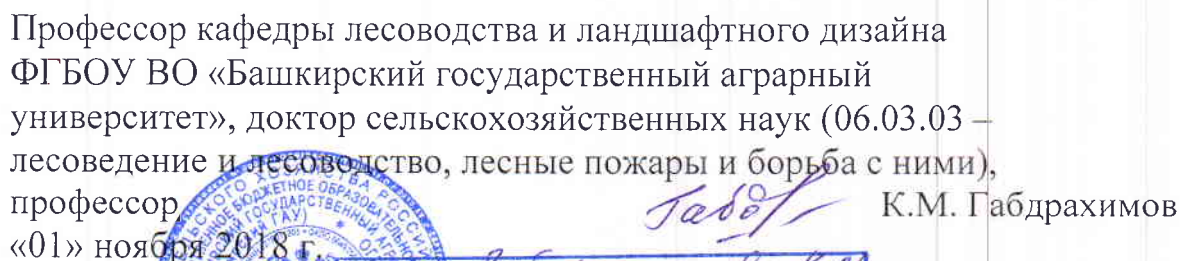 Профессор кафедры лесоводства и ландшафтного дизайна
ФГБОУ ВО «Башкирский государственный аграрный
университет», доктор сельскохозяйственных наук (06.03.03 –
лесоведение и лесоводство, лесные пожары и борьба с ними),
профессор К.М. Габдрахимов
«01» ноября 2018 г.